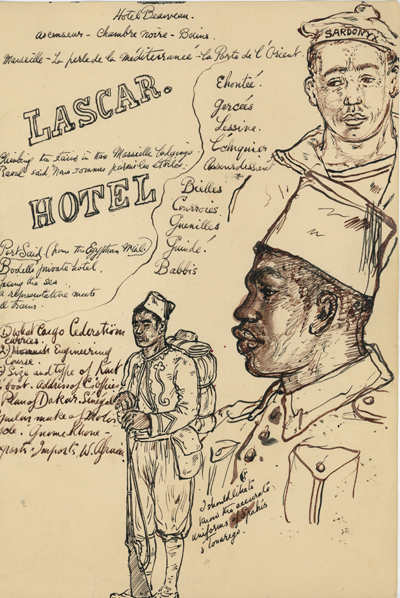 Hotel Beauveau.
ascenseur - Chambre Noire - Bains.
Marseille - La perle de la méditerranée - La Porte de l'Orient.
SARDONYX
LASCAR.
HOTEL
Ehontée.
Gercées
Lessine.
Climbing the stairs in two Marseille lodgings
Raoul said "Nous sommes parmi les étoiles."
Assourdissant
Bielles
Courroies.
Guenilles
Guindé.
Babbis
Port Said (from the Egyptian Mail)
private hotel.
facing the sea.
A representative meets
all trains.
1) what Cargo
carries.
2) Engineering
Course.
3) Size and type of
Cost. Address of
Plan of Dakar Sénégal
make of Motor
Gnome Rhone -
Exports - Imports W. Africa
I should like to
know the accurate
uniforms of Spahis
& touaregs.